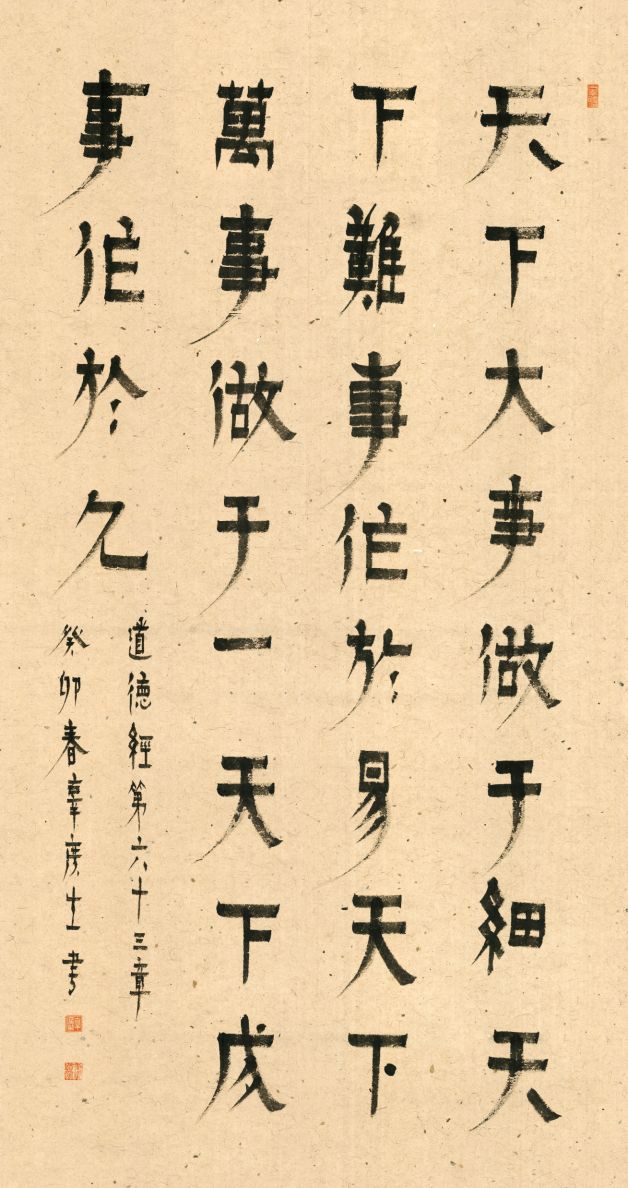 天下大事做于細天
下難事作於易天下
萬事做于一天下成
事作於久
道德經第六十三章
癸卯春書